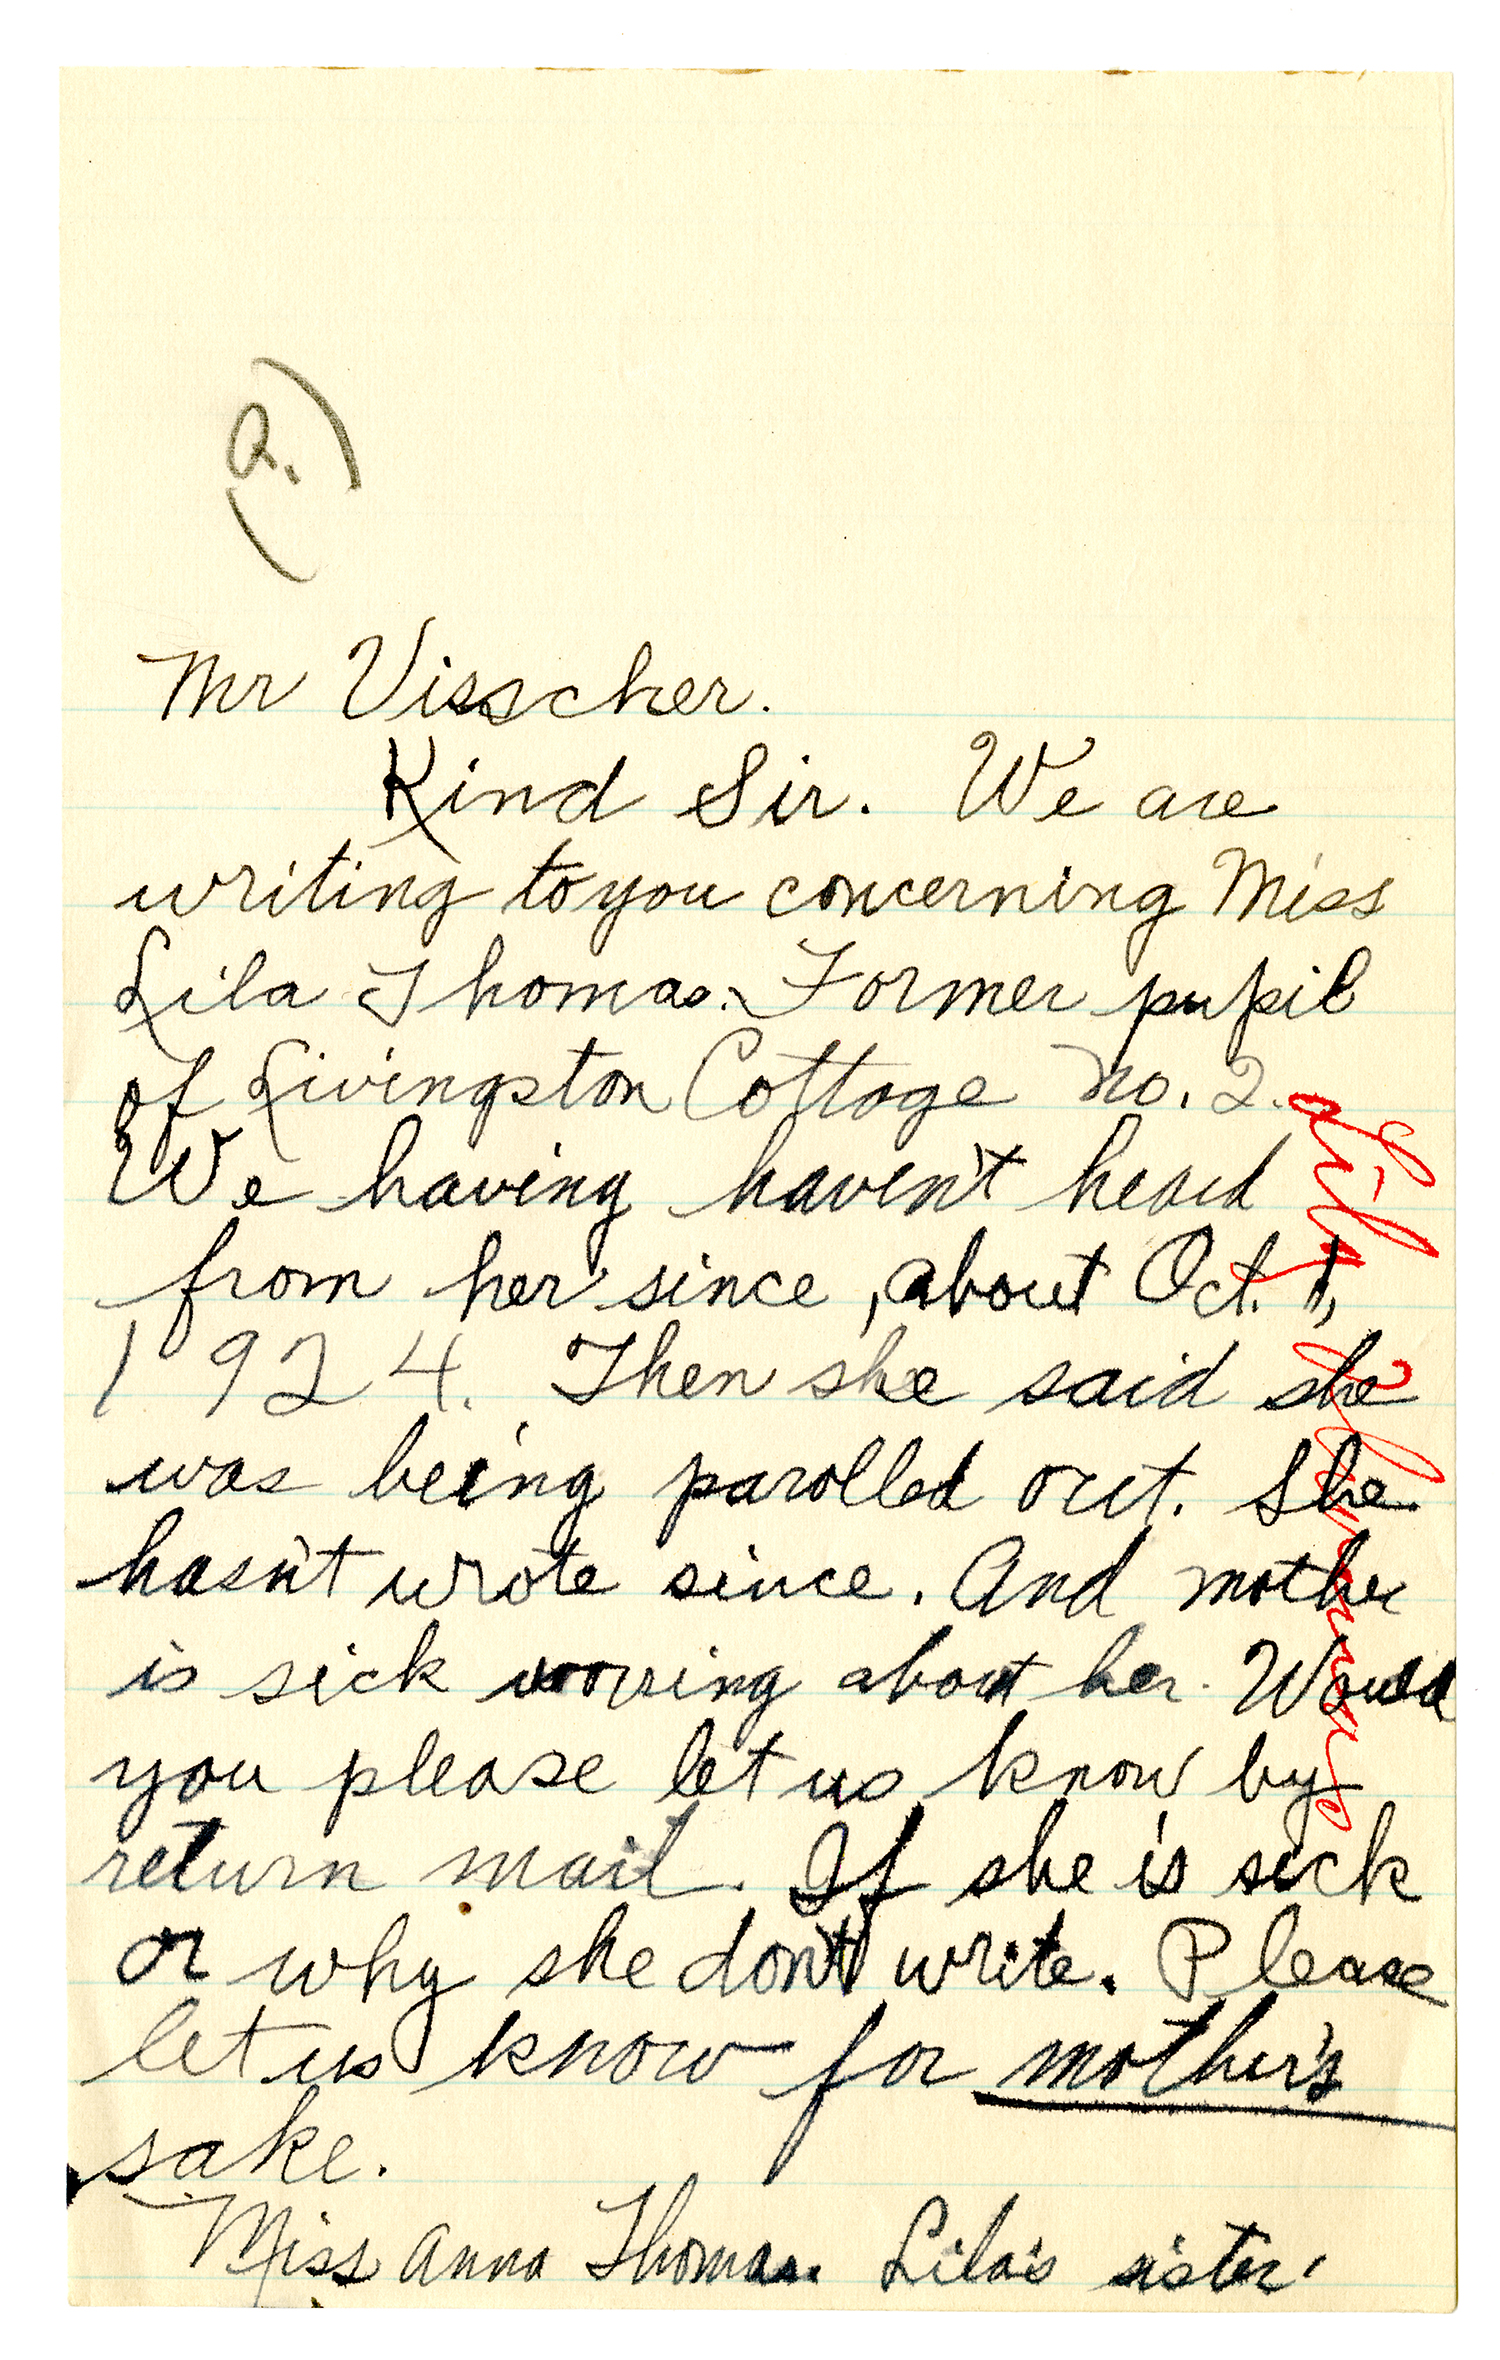 (a.)
Mr Visscher.
Kind Sir. We are
writing to you concerning Miss
Lila Thomas. Former pupil
of Livingston Cottage no. 2.
We having haven't heard
from her since, about Oct. 1,
1924. Then she said she
was being parolled out. She
hasn't wrote since. And mother
is sick worring about her. Would
you please let us know by
return mail. If she is sick
or why she don't write. Please
let us know for mother's
sake.
Miss Anna Thomas. Lila's sister.
Lila